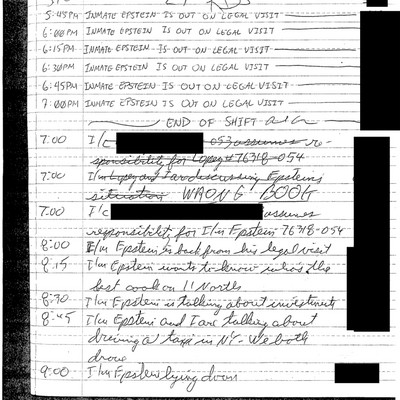 5:45PM INMATE EPSTEIN IS OUT ON LEGAL VISIT
6:00PM INMATE EPSTEIN IS OUT ON LEGAL VISIT
6:15PM INMATE EPSTEIN IS OUT ON LEGAL VISIT
6:30PM INMATE EPSTEIN IS OUT ON LEGAL VISIT
6:45PM INMATE EPSTEIN IS OUT ON LEGAL VISIT
7:00PM INMATE EPSTEIN IS OUT ON LEGAL VISIT
END OF SHIFT
7:00 I/C assumes re-
sponsibility for Lopez # 76318-054
7:00 I/m Lopez and I are discussing Epstein's
situation WRONG BOOK
7:00 I/c assumes
responsibility for I/m Epstein 76318-054
8:00 I/m Epstein is back from his legal visit
8:15 I/m Epstein wants to know who's the
best cook on 11 North
8:30 I/m Epstein is talking about investments
8:45 I/m Epstein and I are talking about
driving a taxi in NY. We both
drove
9:00 I/m Epstein lying down